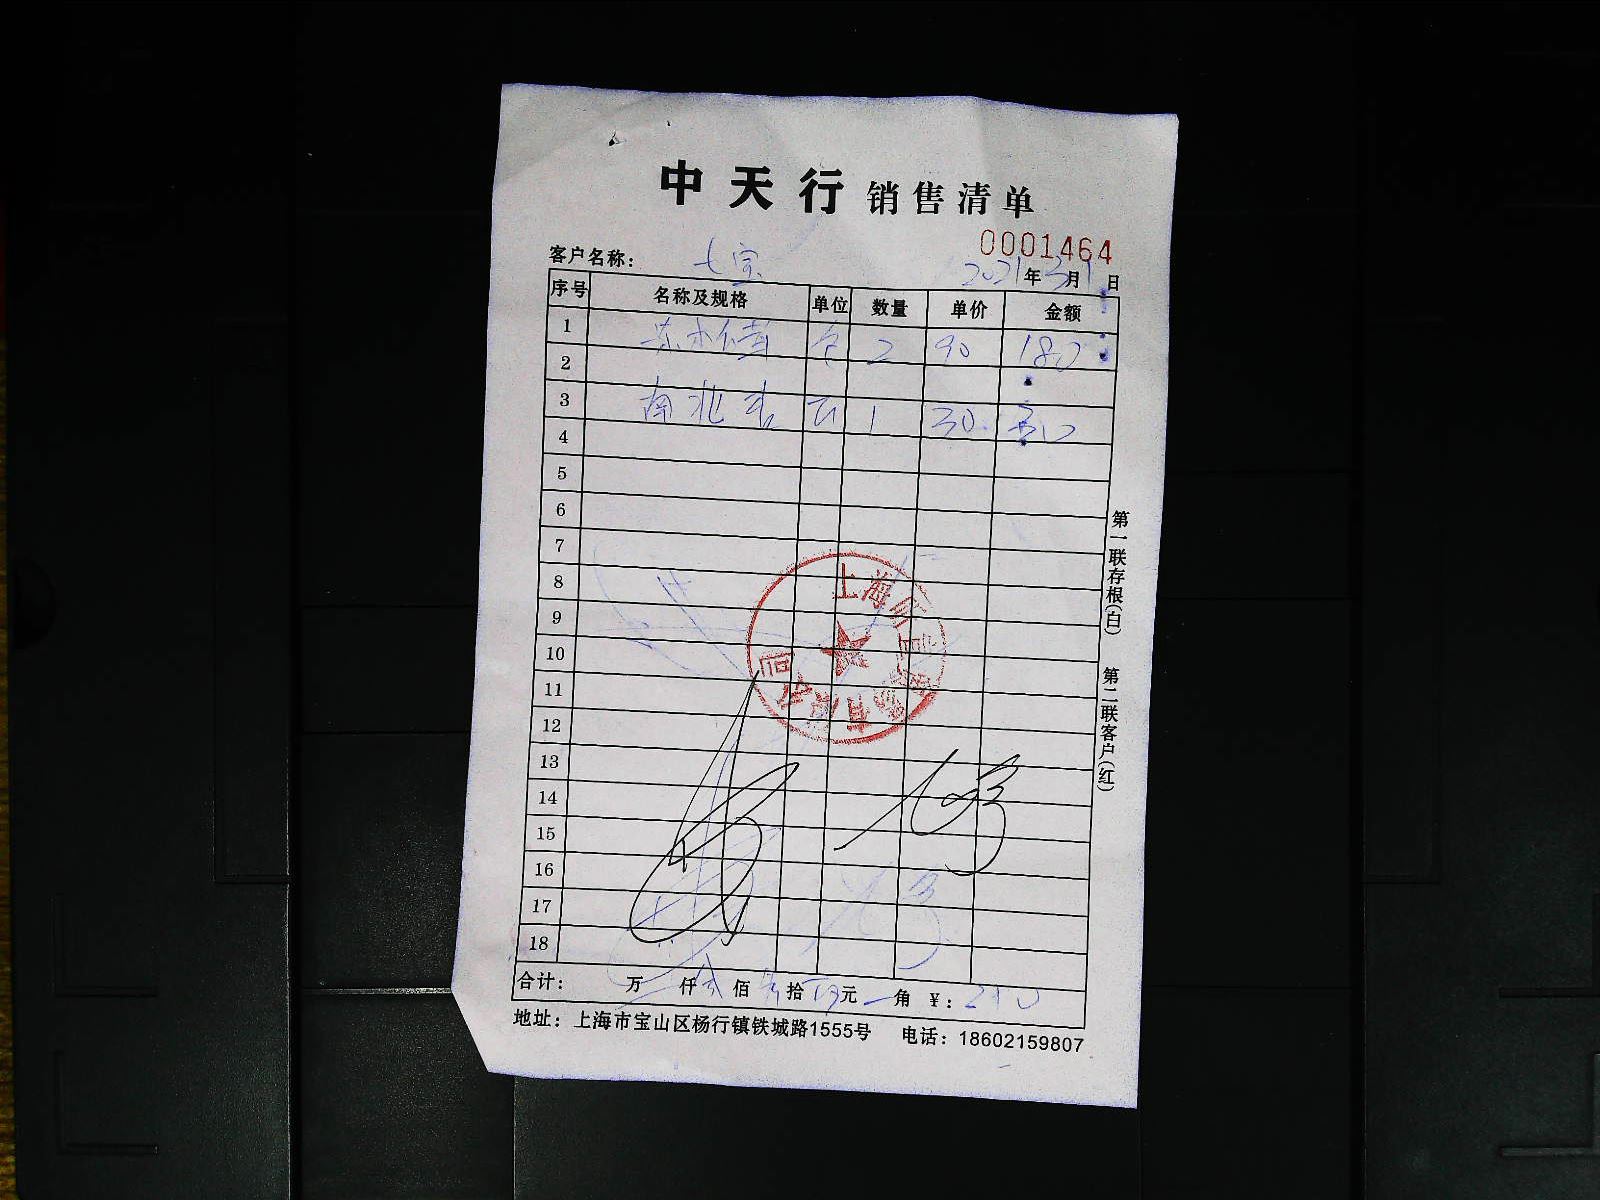 中天行 销售清单
0001464
客户名称： 七宝
2021年3月1日
序号 名称及规格 单位 数量 单价 金额
1 2 90 180
2
3 南北 1 30. 30
4
5
6
7
8
9
10
11
12
13
14
15
16
17
18
上海 有限公司
合计： 万 仟 贰 佰 拾 元 角 ￥： 210
地址：上海市宝山区杨行镇铁城路1555号 电话：18602159807
第一联存根(白) 第二联客户(红)